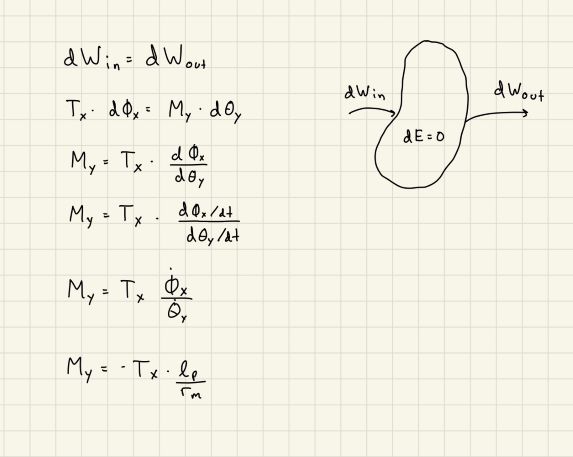 dW_in = dW_out
T_x · dϕ_x = M_y · dθ_y
M_y = T_x · dϕ_x / dθ_y
M_y = T_x · (dϕ_x/dt) / (dθ_y/dt)
M_y = T_x ϕ̇_x / θ̇_y
M_y = - T_x · l_p / r_m
dW_in
dE = 0
dW_out